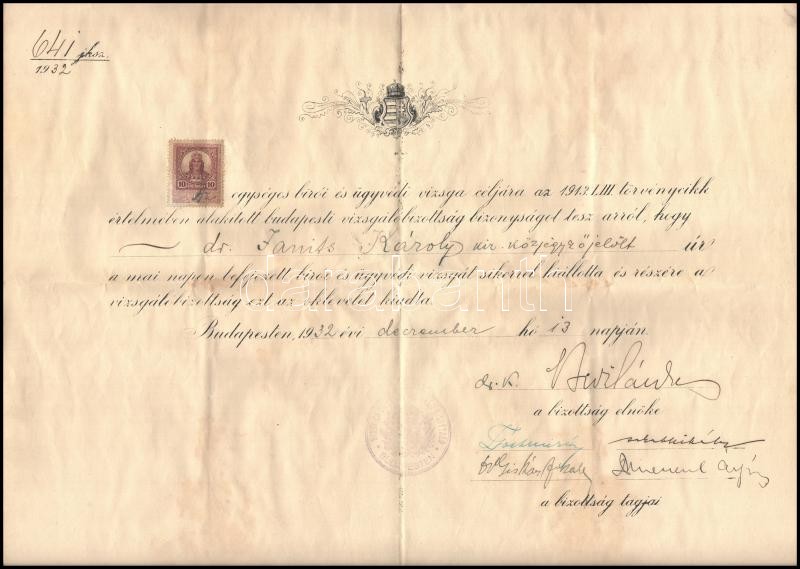 641 jksz.
1932
10 10
egységes birói és ügyvédi vizsga céljára az 1913:LIII. törvénycikk
értelmében alakitott budapesti vizsgálóbizottság bizonyságot tesz arról, hogy
dr. Janits Károly kir. közjegyzőjelölt úr
a mai napon befejezett birói és ügyvédi vizsgát sikerrel kiállotta és részére a
vizsgálóbizottság ezt az oklevelet kiadta.
Budapesten, 1932 évi december hó 13 napján.
dr. K.
a bizottság elnöke
a bizottság tagjai
darabanth
BUDAPESTEN